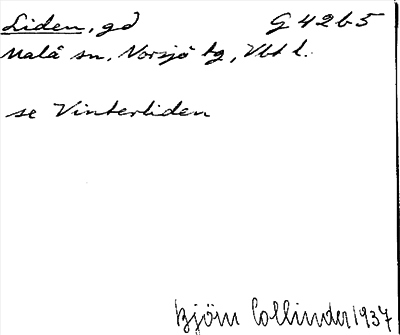 Liden, gd G 42b5
Malå sn, Norsjö tg, Vbt l.
se Vinterliden
Björn Collinder 1937